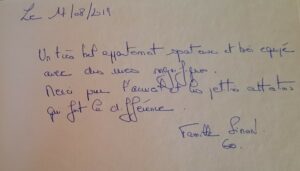 Le 17/08/2019
Un très bel appartement spacieux et très équipé
avec des vues magnifiques.
Merci pour l'accueil et les petites attentions
qui font la différence.
Famille
60.